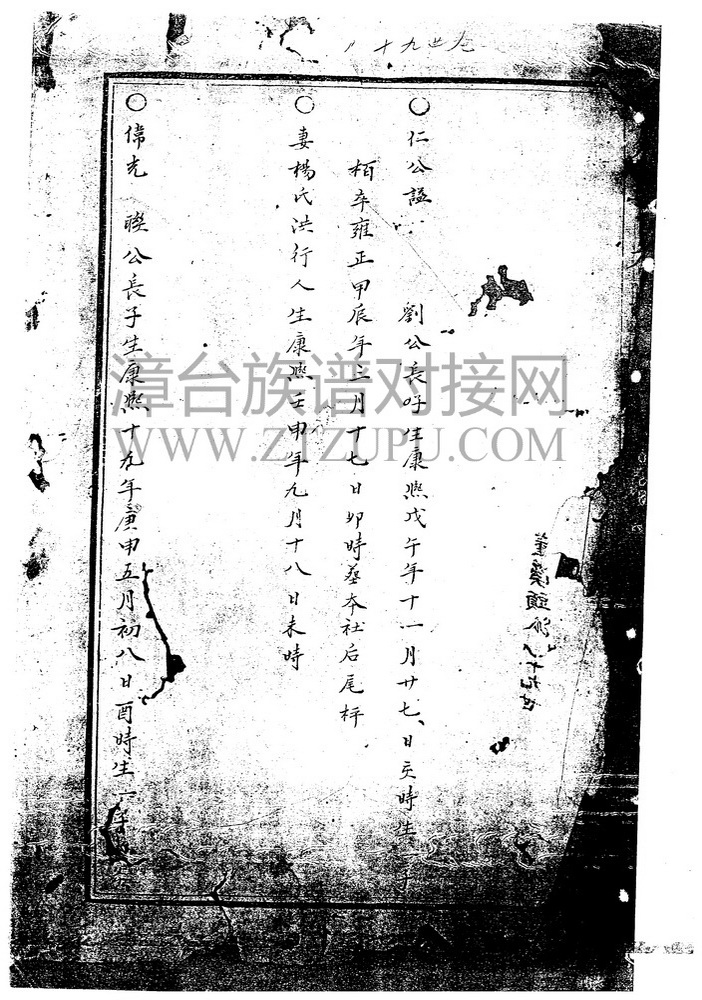 九世九十
○仁公謚 劉公長吁生康熙戊午年十一月廿七、日亥時生
栢卒雍正甲辰年三月十七日卯時葬本社后尾柈
○妻楊氏洪行人生康熙壬申年九月十八日未時
○偉光 聯公長子生康熙十九年庚申五月初八日酉時生一
漳台族谱对接网
WWW.ZTZUPU.COM